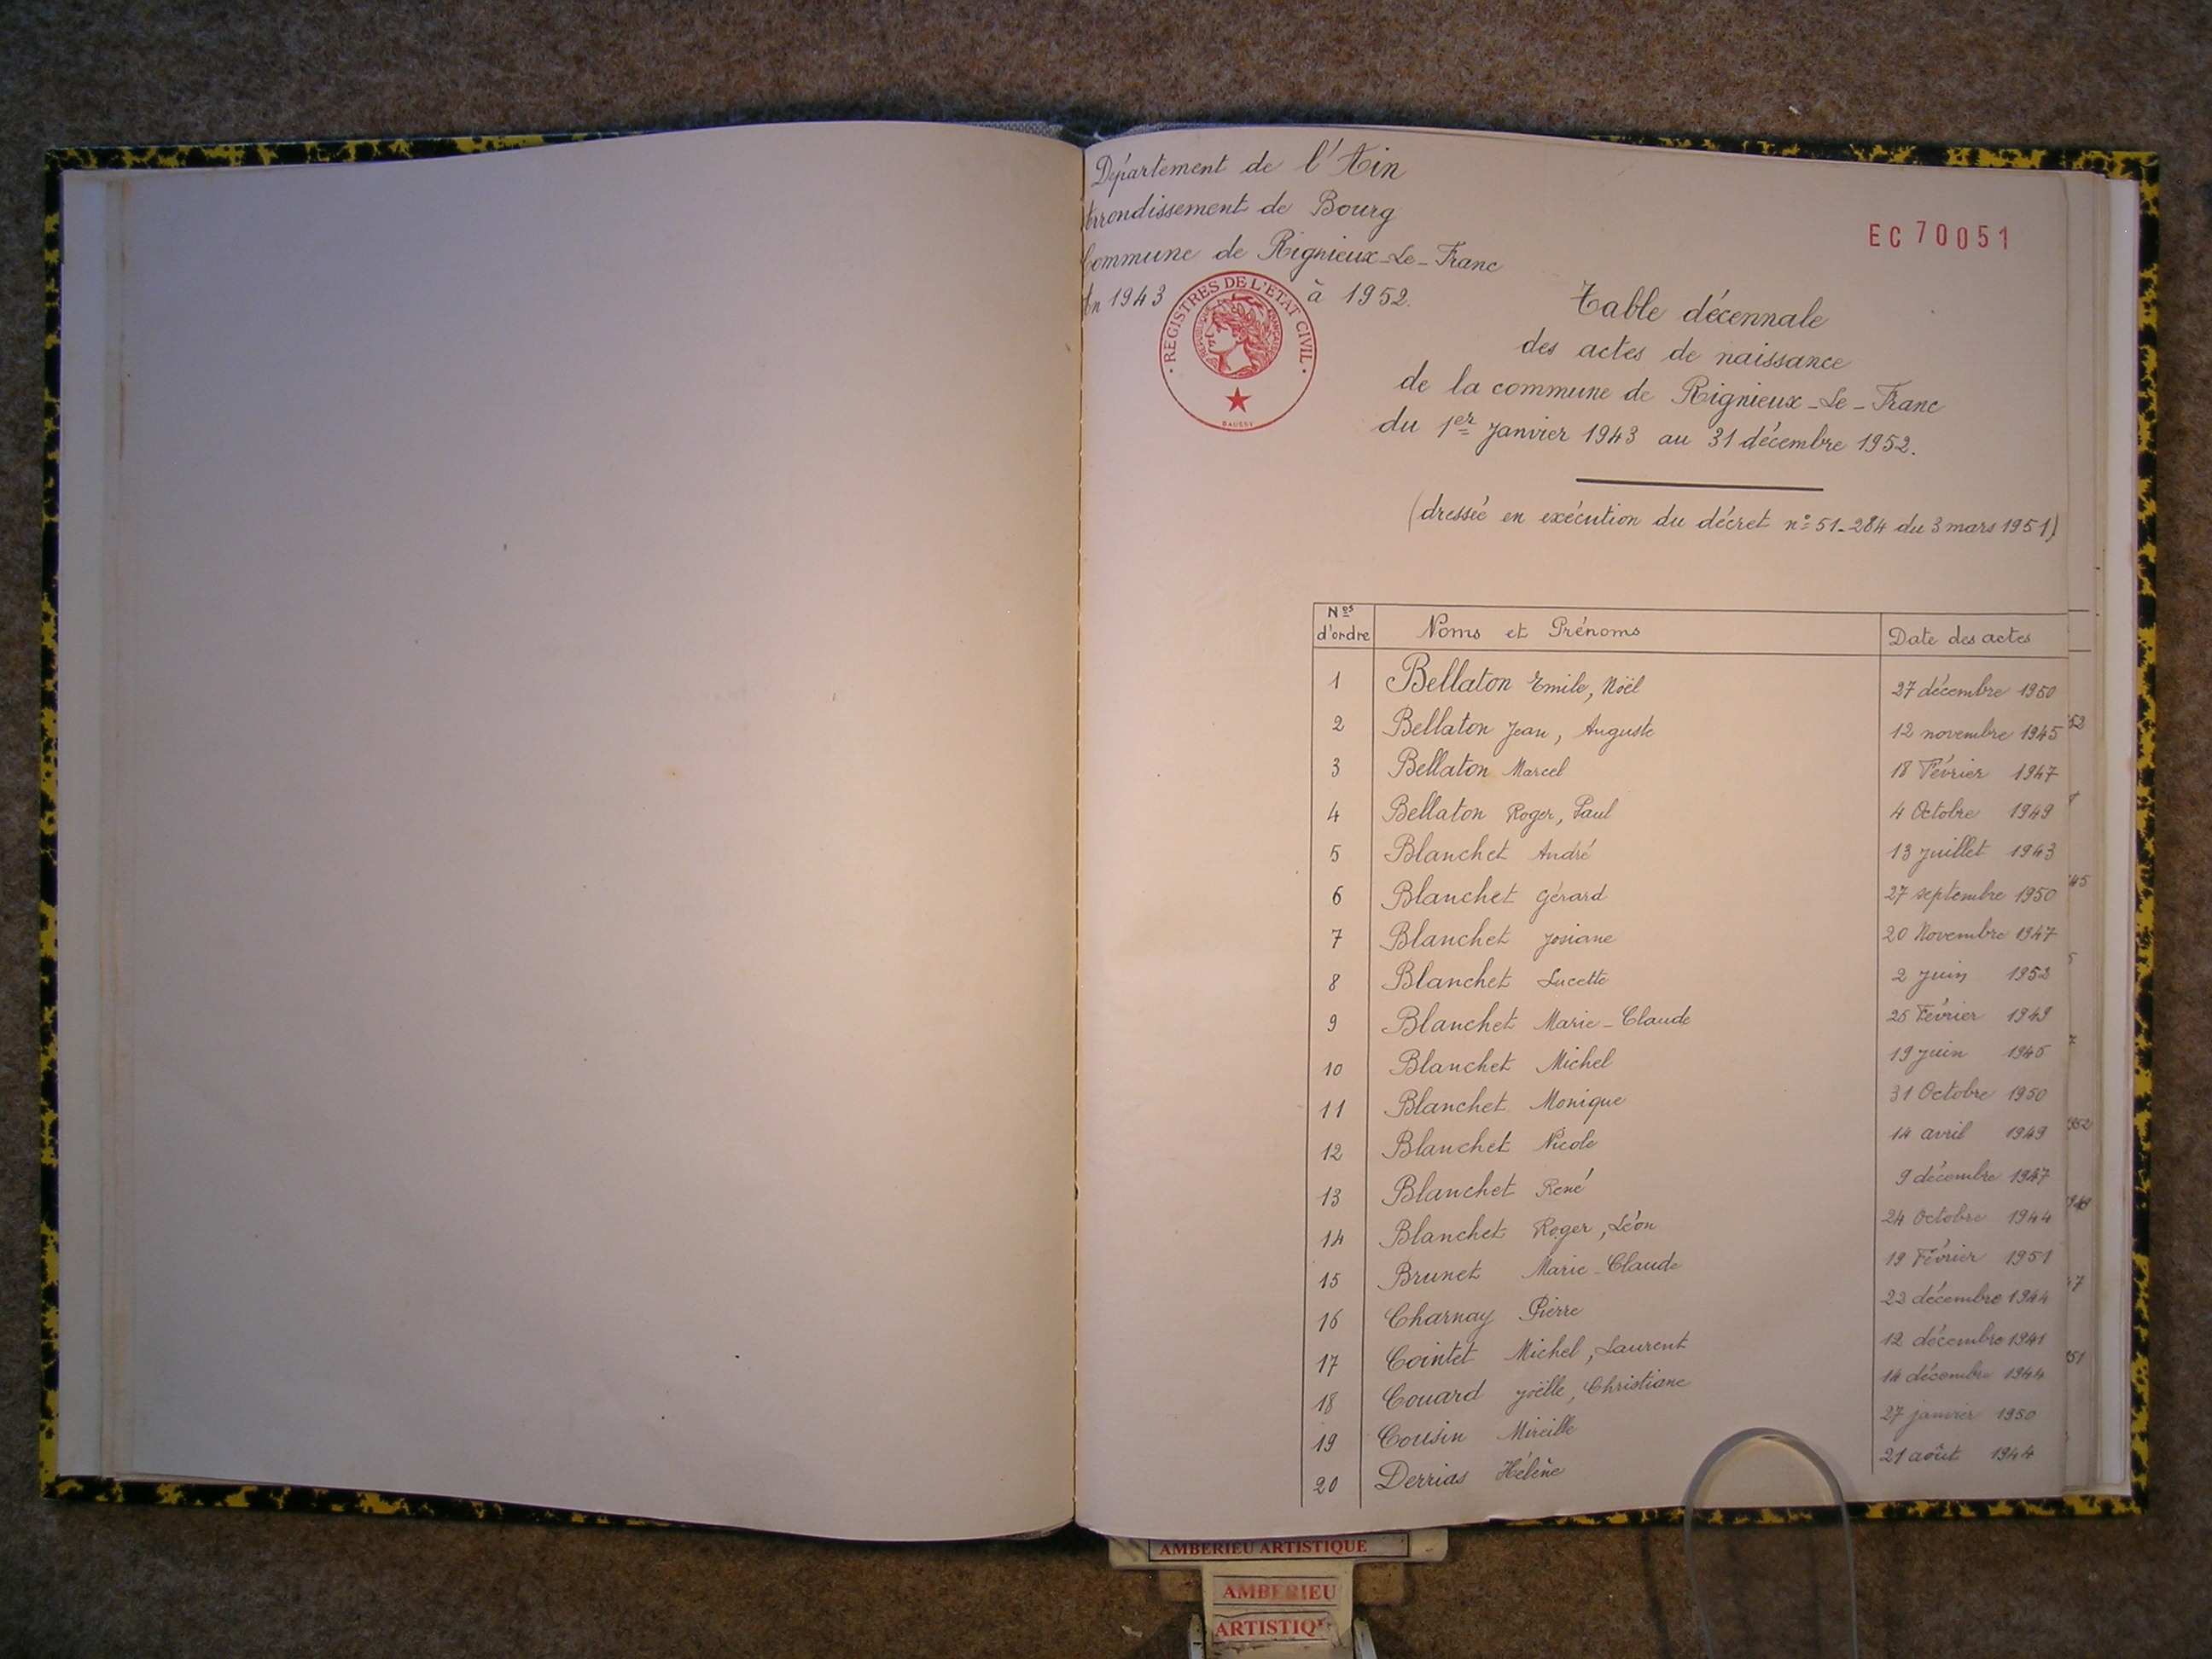 Département de l'Ain
Arrondissement de Bourg
Commune de Rignieux-Le-Franc
An 1943 à 1952.
REGISTRES DE L'ETAT CIVIL
REPUBLIQUE FRANÇAISE
EC 70051
Table décennale
des actes de naissance
de la commune de Rignieux-Le-Franc
du 1er janvier 1943 au 31 décembre 1952.
(dressée en exécution du décret n° 51-284 du 3 mars 1951)
Nos d'ordre Noms et Prénoms Date des actes
1 Bellaton Emile, Nöël 27 décembre 1950
2 Bellaton Jean, Auguste 12 novembre 1945
3 Bellaton Marcel 18 Février 1947
4 Bellaton Roger, Paul 4 Octobre 1949
5 Blanchet André 13 juillet 1943
6 Blanchet Gérard 27 septembre 1950
7 Blanchet Josiane 20 Novembre 1947
8 Blanchet Lucette 2 juin 1952
9 Blanchet Marie-Claude 25 Février 1949
10 Blanchet Michel 19 juin 1945
11 Blanchet Monique 31 Octobre 1950
12 Blanchet Nicole 14 avril 1949
13 Blanchet René 9 décembre 1947
14 Blanchet Roger, Léon 24 Octobre 1944
15 Brunet Marie-Claude 19 Février 1951
16 Charnay Pierre 22 décembre 1944
17 Cointet Michel, Laurent 12 décembre 1941
18 Couard Joëlle, Christiane 14 décembre 1944
19 Cousin Mireille 27 janvier 1950
20 Derrias Hélène 21 août 1944
AMBERIEU ARTISTIQUE
AMBERIEU
ARTISTIQU